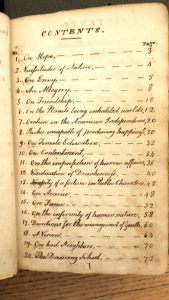 CONTENTS.
Page.
1. On Hope, 3
2. 4
3. On Envy, 5
4. An Allegory, 8
5. On Friendship, 10
6. On the Planets being inhabited worlds, 12
7. Oration on the American Independence, 20
8. Riches incapable of producing happiness, 30
9. On Female Education, 32
10. On Contentment, 34
11. On the imperfection of human affairs, 36
12. Vindication of Drunkenness, 40
13. in Public Characters, 42
14. On Avarice, 48
15. On Fame, 52
16. On the uniformity of human nature, 58
17. Directions for the management of youth, 60
18. A Vision, 64
19. On bad Neighbors, 70
20. The Dancing School, 72